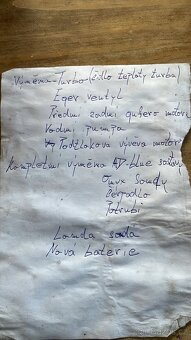 Výměna Turbo (čidlo teploty turba)
Eger ventyl
Předni zadni gufero motoru
Vodni pumpa
Podtlakova vývěva motor
Kompletni výměna AD-blue soustavy
Sondy
čerpadlo
Potrubi
Lamda sonda
Nová baterie